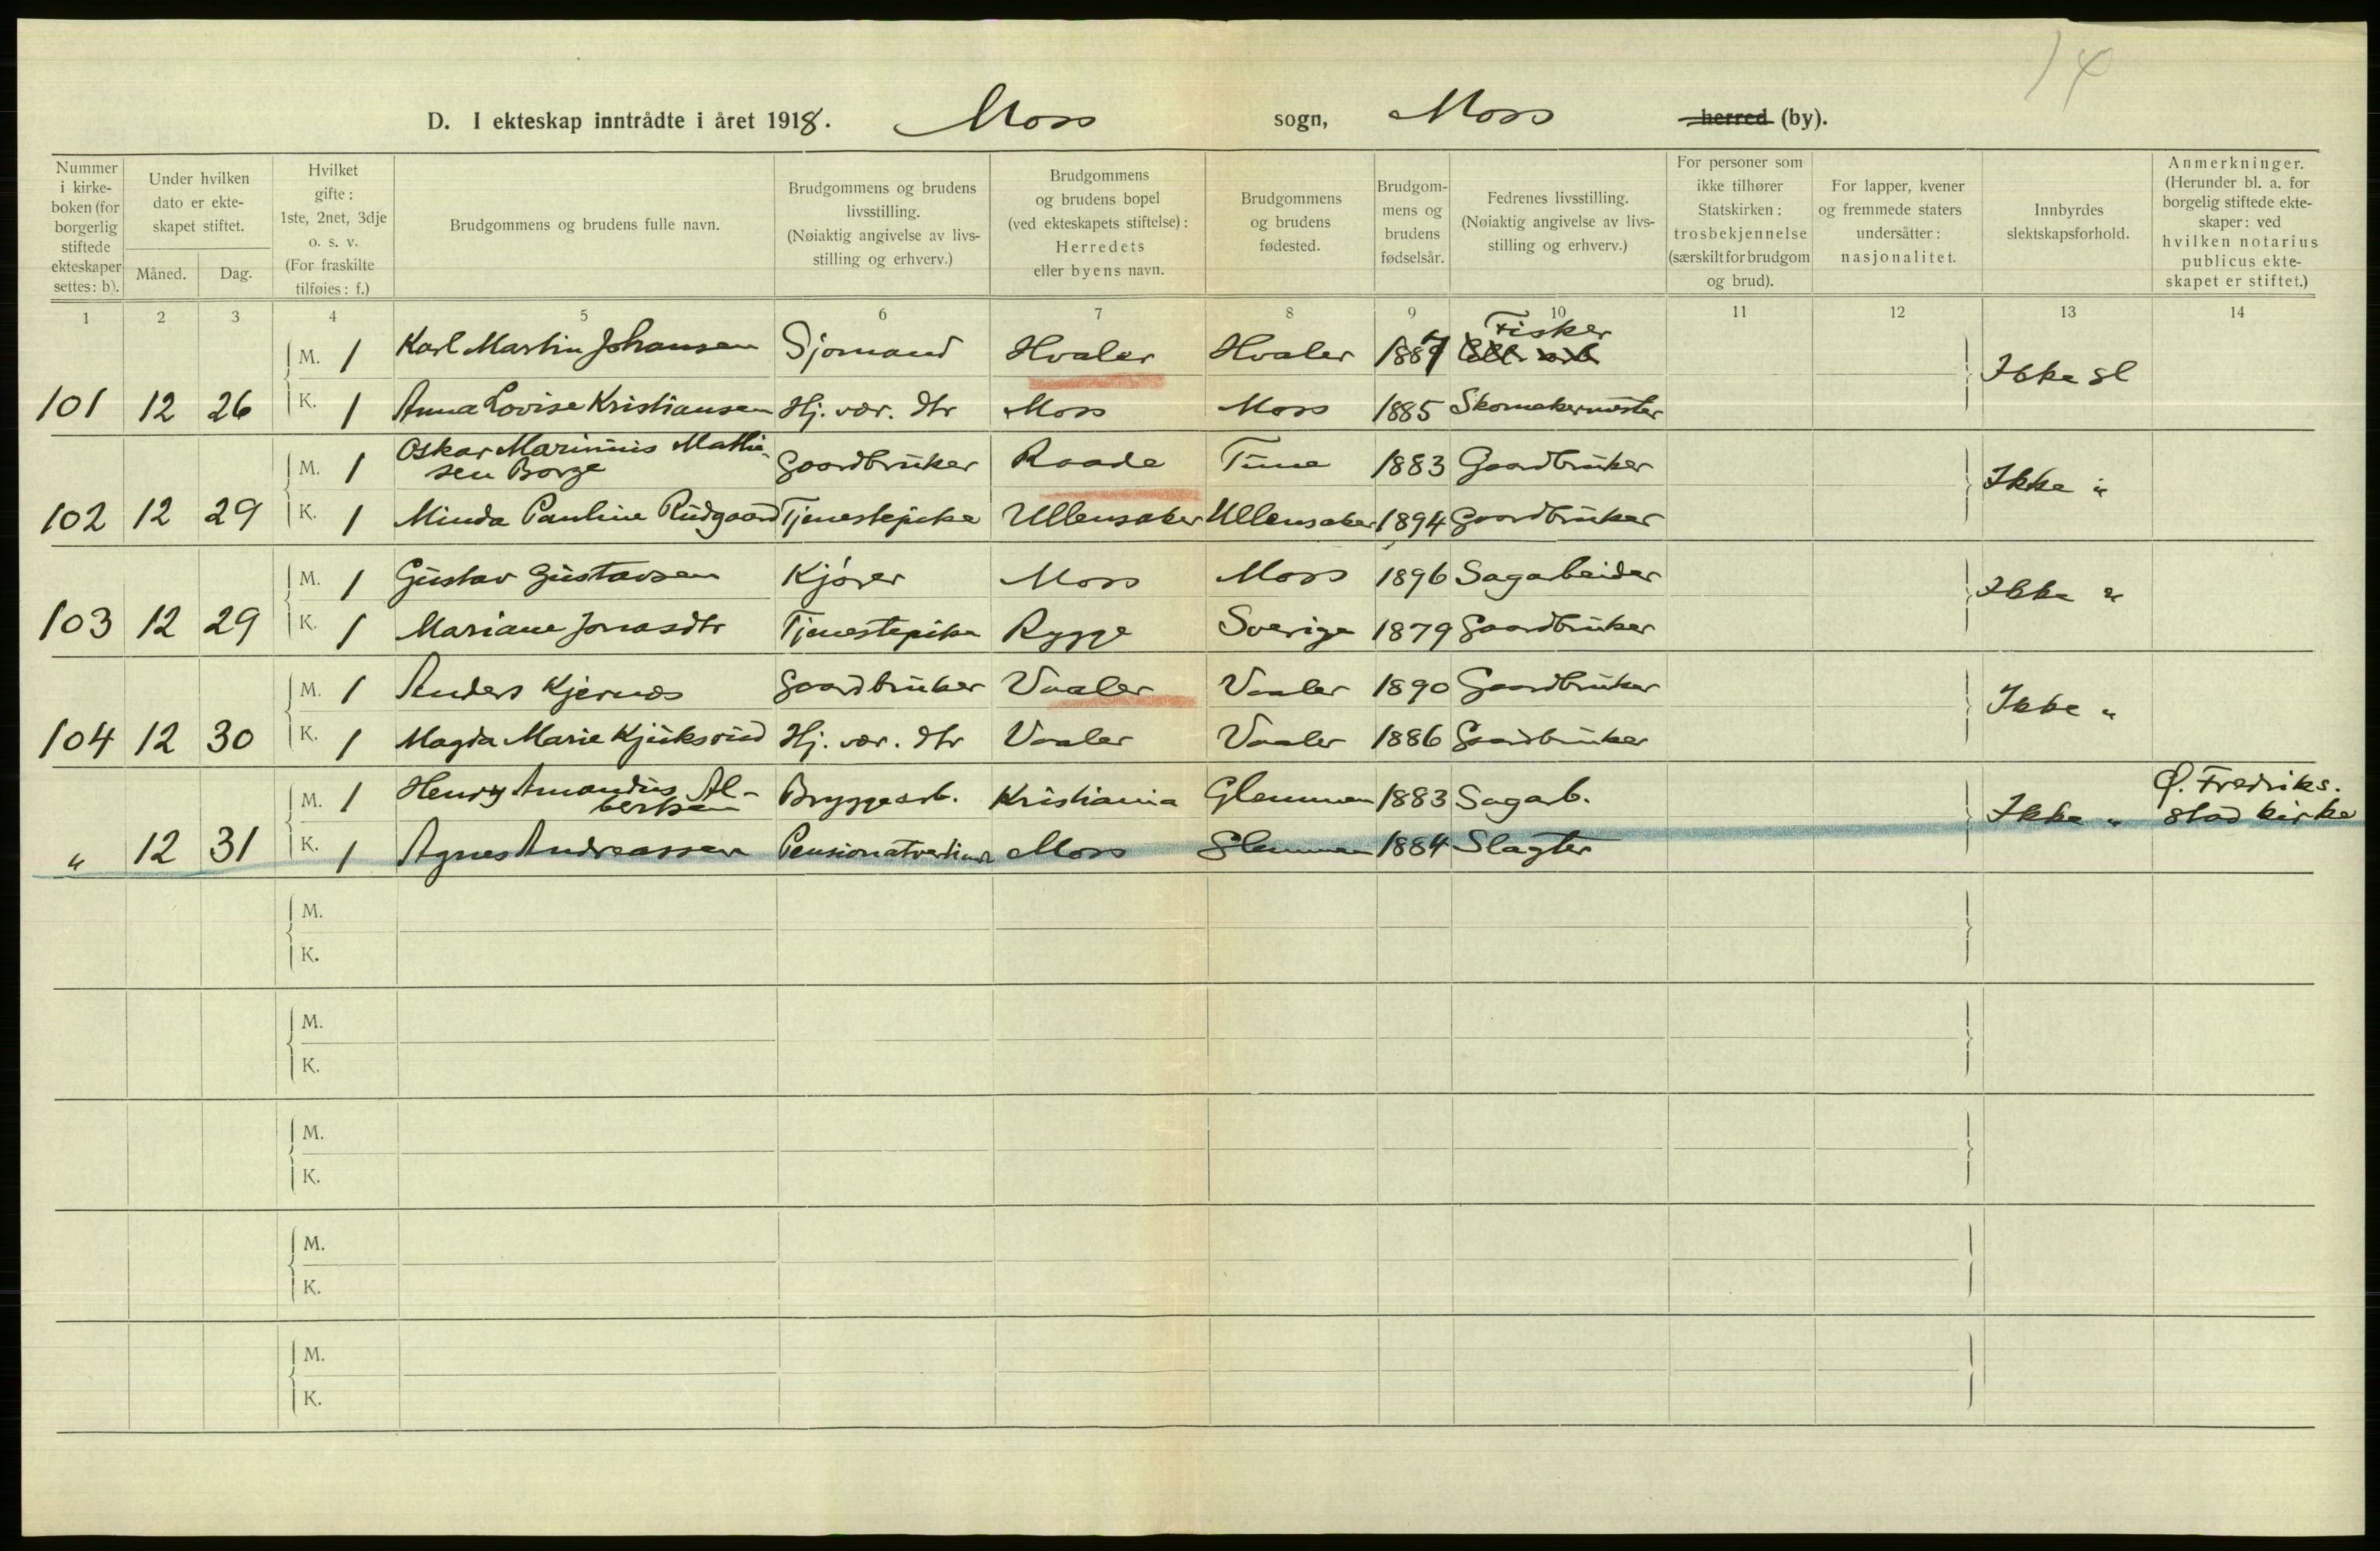 14
D. I ekteskap inntrådte i året 1918. Moss sogn, Moss herred (by).
Nummer i kirke-boken (for borgerlig stiftede ekteskaper settes: b).
Under hvilken dato er ekte-skapet stiftet.
Måned. Dag.
Hvilket gifte: 1ste, 2net, 3dje o. s. v. (For fraskilte tilføies: f.)
Brudgommens og brudens fulle navn.
Brudgommens og brudens livsstilling. (Nøiaktig angivelse av livs-stilling og erhverv.)
Brudgommens og brudens bopel (ved ekteskapets stiftelse): Herredets eller byens navn.
Brudgommens og brudens fødested.
Brudgom-mens og brudens fødselsår.
Fedrenes livsstilling. (Nøiaktig angivelse av livs-stilling og erhverv.)
For personer som ikke tilhører Statskirken: trosbekjennelse (særskilt for brudgom og brud).
For lapper, kvener og fremmede staters undersåtter: nasjonalitet.
Innbyrdes slektskapsforhold.
Anmerkninger. (Herunder bl. a. for borgelig stiftede ekte-skaper: ved hvilken notarius publicus ekte-skapet er stiftet.)
1 2 3 4 5 6 7 8 9 10 11 12 13 14
M. 1 Karl Martin Johansen Sjomand Hvaler Hvaler 1887 Fisker
101 12 26 K. 1 Anna Lovise Kristiansen Hj. vær. dtr Moss Moss 1885 Skomakermester Ikke sl
M. 1 Oskar Marinius Mathi-
sen Borge Gaardbruker Raade Tune 1883 Gaardbruker
102 12 29 K. 1 Minda Pauline Rudgaard Tjenestepike Ullensaker Ullensaker 1894 Gaardbruker Ikke "
M. 1 Gustav Gustavsen Kjører Moss Moss 1896 Sagarbeider
103 12 29 K. 1 Mariane Jonasdtr Tjenestepike Rygge Sverige 1879 Gaardbruker Ikke "
M. 1 Anders Kjernes Gaardbruker Vaaler Vaaler 1890 Gaardbruker
104 12 30 K. 1 Magda Marie Kjuksrud Hj. vær. dtr Vaaler Vaaler 1886 Gaardbruker Ikke "
M. 1 Henry Amandus Al-
bertsen Bryggearb. Kristiania Glemmen 1883 Sagarb. Ø. Fredriks.
stad kirke
" 12 31 K. 1 Agnes Andreassen Moss Glemmen 1884 Slagter Ikke "
M.
K.
M.
K.
M.
K.
M.
K.
M.
K.